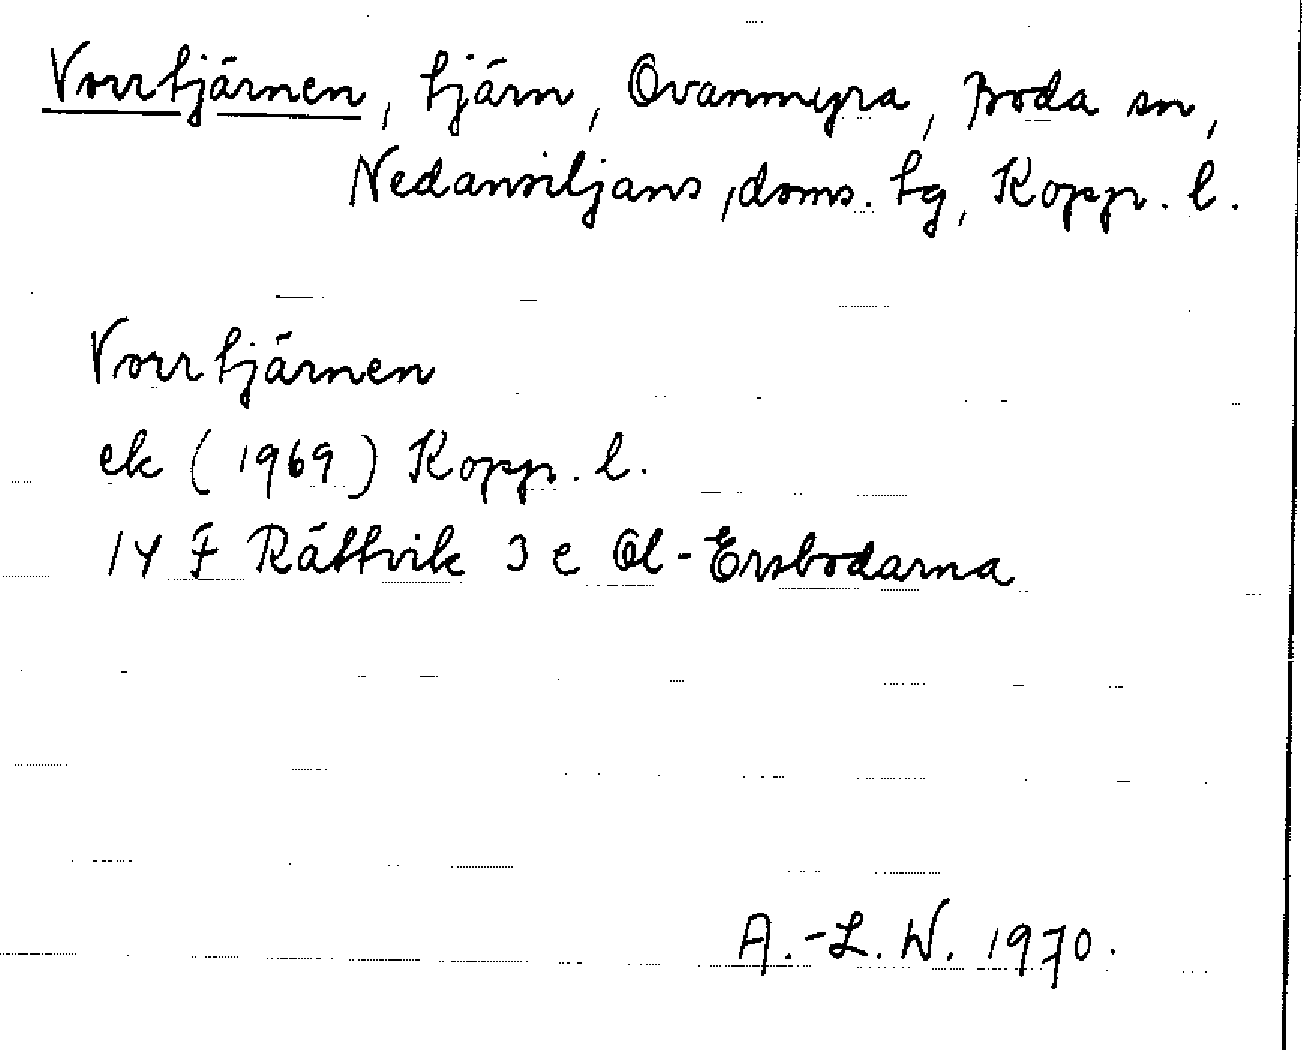 Vorrtjärnen, tjärn, Ovanmyra, Boda sn,
Nedansiljans, doms. tg, Kopp. l.
Vorrtjärnen
ek (1969) Kopp. l.
14 F Rättvik 3 e Ol-Ersbodarna
A.-L. W. 1970.